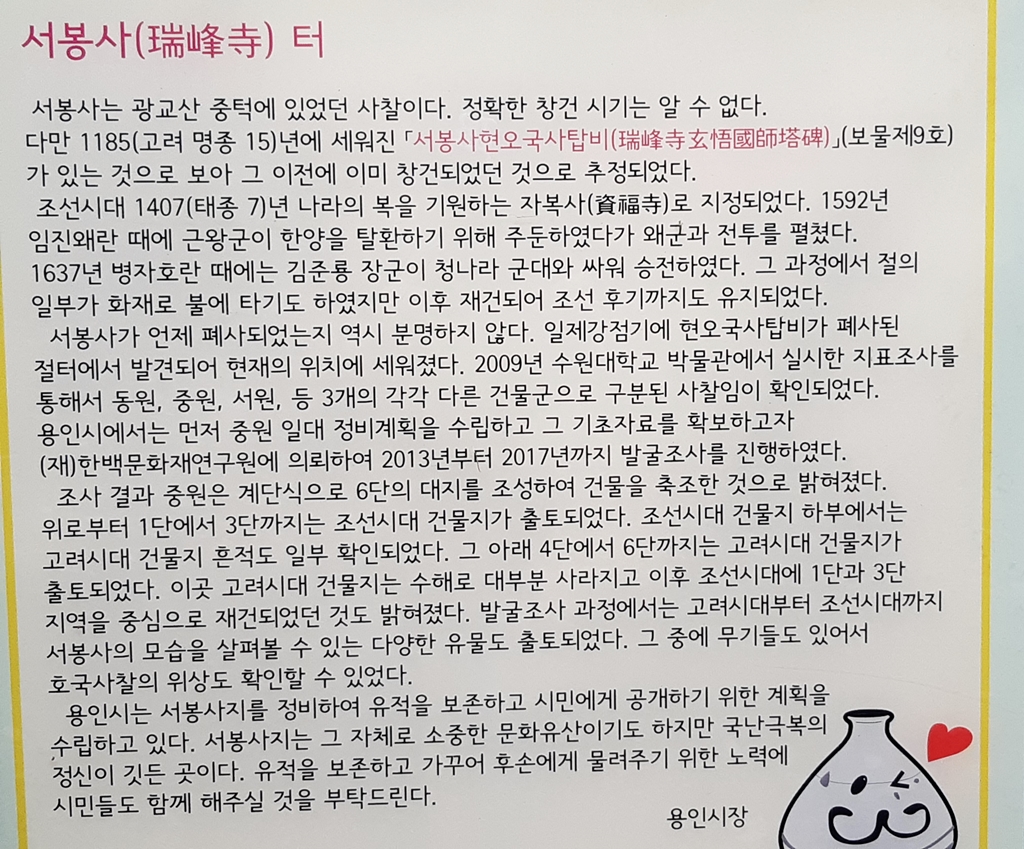 서봉사(瑞峰寺) 터
서봉사는 광교산 중턱에 있었던 사찰이다. 정확한 창건 시기는 알 수 없다.
다만 1185(고려 명종 15)년에 세워진 「서봉사현오국사탑비(瑞峰寺玄悟國師塔碑)」(보물제9호)
가 있는 것으로 보아 그 이전에 이미 창건되었던 것으로 추정되었다.
조선시대 1407(태종 7)년 나라의 복을 기원하는 자복사(資福寺)로 지정되었다. 1592년
임진왜란 때에 근왕군이 한양을 탈환하기 위해 주둔하였다가 왜군과 전투를 펼쳤다.
1637년 병자호란 때에는 김준룡 장군이 청나라 군대와 싸워 승전하였다. 그 과정에서 절의
일부가 화재로 불에 타기도 하였지만 이후 재건되어 조선 후기까지도 유지되었다.
서봉사가 언제 폐사되었는지 역시 분명하지 않다. 일제강점기에 현오국사탑비가 폐사된
절터에서 발견되어 현재의 위치에 세워졌다. 2009년 수원대학교 박물관에서 실시한 지표조사를
통해서 동원, 중원, 서원, 등 3개의 각각 다른 건물군으로 구분된 사찰임이 확인되었다.
용인시에서는 먼저 중원 일대 정비계획을 수립하고 그 기초자료를 확보하고자
(재)한백문화재연구원에 의뢰하여 2013년부터 2017년까지 발굴조사를 진행하였다.
조사 결과 중원은 계단식으로 6단의 대지를 조성하여 건물을 축조한 것으로 밝혀졌다.
위로부터 1단에서 3단까지는 조선시대 건물지가 출토되었다. 조선시대 건물지 하부에서는
고려시대 건물지 흔적도 일부 확인되었다. 그 아래 4단에서 6단까지는 고려시대 건물지가
출토되었다. 이곳 고려시대 건물지는 수해로 대부분 사라지고 이후 조선시대에 1단과 3단
지역을 중심으로 재건되었던 것도 밝혀졌다. 발굴조사 과정에서는 고려시대부터 조선시대까지
서봉사의 모습을 살펴볼 수 있는 다양한 유물도 출토되었다. 그 중에 무기들도 있어서
호국사찰의 위상도 확인할 수 있었다.
용인시는 서봉사지를 정비하여 유적을 보존하고 시민에게 공개하기 위한 계획을
수립하고 있다. 서봉사지는 그 자체로 소중한 문화유산이기도 하지만 국난극복의
정신이 깃든 곳이다. 유적을 보존하고 가꾸어 후손에게 물려주기 위한 노력에
시민들도 함께 해주실 것을 부탁드린다.
용인시장